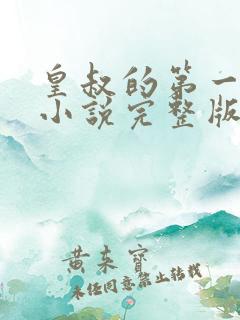 皇叔的第一
小说完整版
黄来宝
未经同意禁止转载